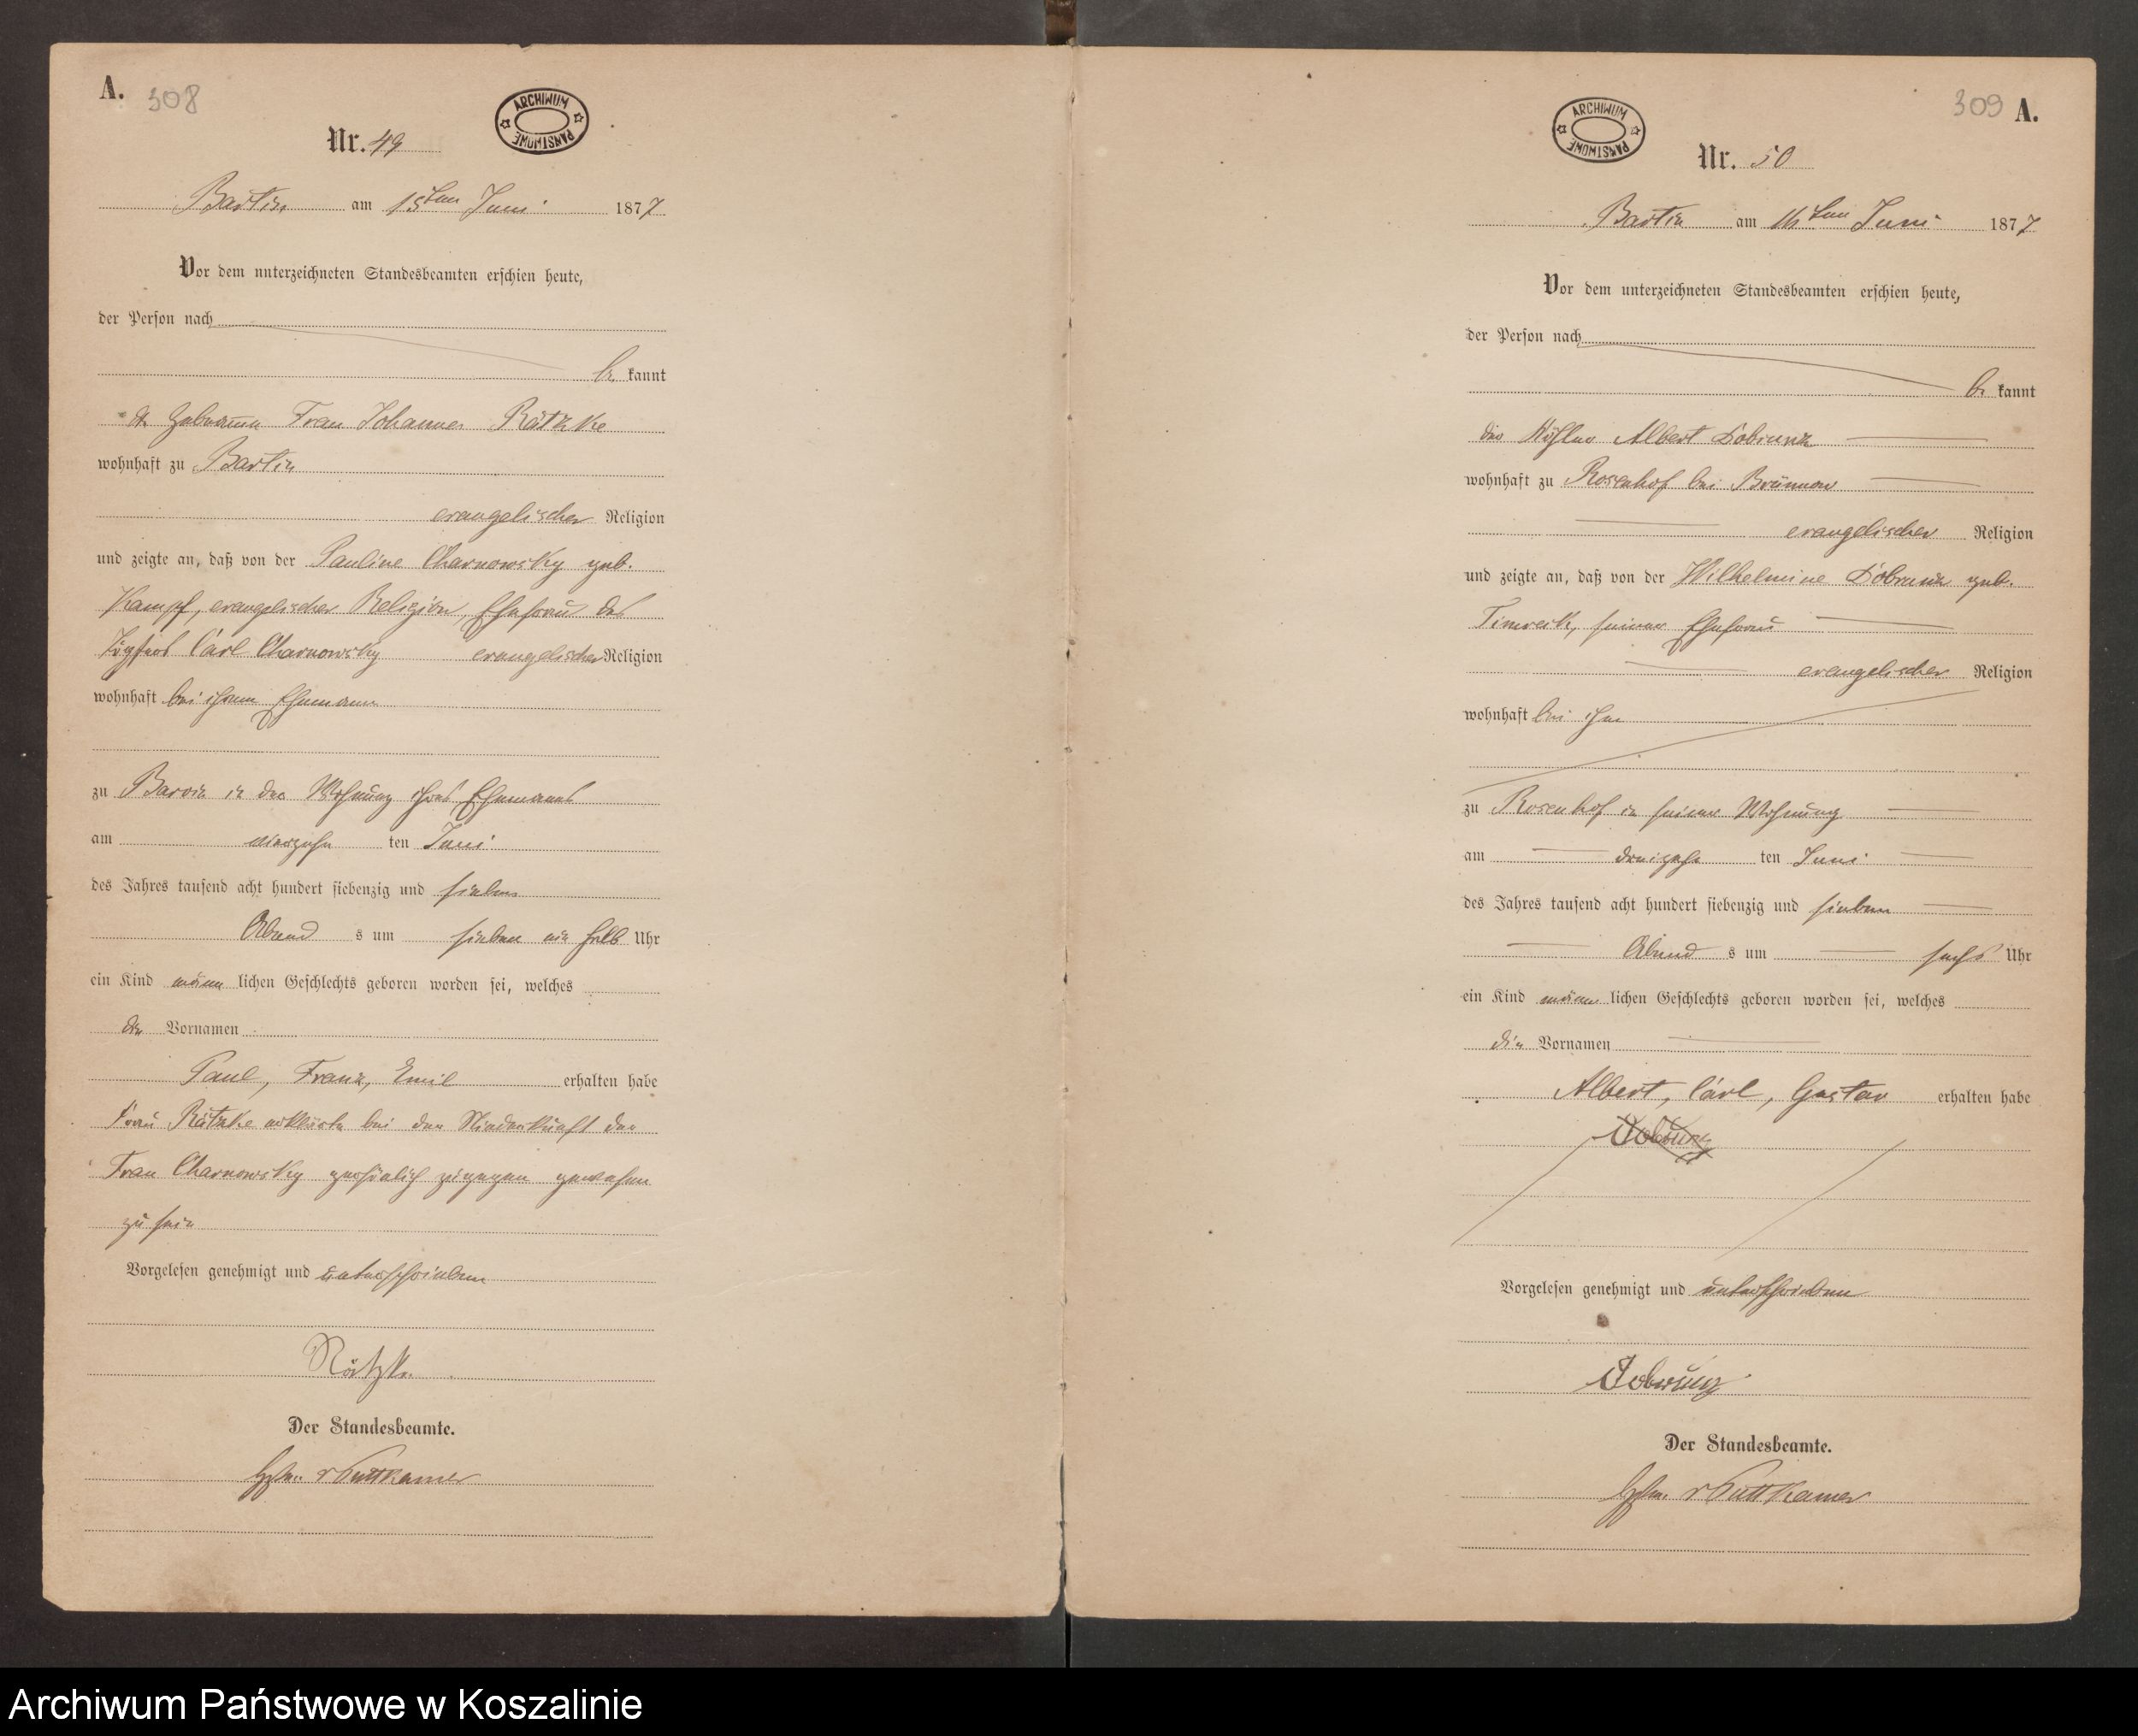 A. 308
ARCHIWUM PAŃSTWOWE
Nr. 49
Bartin am 15ten Juni 1877
Vor dem unterzeichneten Standesbeamten erschien heute,
der Person nach
be kannt
die Hebamme Frau Johanne Rätzke
wohnhaft zu Bartin
evangelischer Religion
und zeigte an, daß von der Pauline Charnowsky geb.
Kampf, evangelischer Religion, Ehefrau des
Carl Charnowsky evangelischer Religion
wohnhaft bei ihrem Ehemann
zu Barvin in der Wohnung ihres Ehemanns
am vierzehn ten Juni
des Jahres tausend acht hundert siebenzig und sieben
Abend s um sieben ein halb Uhr
ein Kind männ lichen Geschlechts geboren worden sei, welches
die Vornamen
Paul, Franz, Emil erhalten habe
Frau Rätzke erklärte bei der Niederkunft der
Frau Charnowsky persönlich zugegen gewesen
zu sein
Vorgelesen genehmigt und unterschrieben
Rätzke
Der Standesbeamte.
v Puttkamer
309 A.
ARCHIWUM PAŃSTWOWE
Nr. 50
Bartin am 16ten Juni 1877
Vor dem unterzeichneten Standesbeamten erschien heute,
der Person nach
be kannt
der Albert Dobrunz
wohnhaft zu Rosenhof bei Brünnow
evangelischer Religion
und zeigte an, daß von der Wilhelmine Dobrunz geb.
Timreck, seiner Ehefrau
evangelischer Religion
wohnhaft bei ihm
zu Rosenhof in seiner Wohnung
am dreizehn ten Juni
des Jahres tausend acht hundert siebenzig und sieben
Abend s um sechs Uhr
ein Kind männ lichen Geschlechts geboren worden sei, welches
die Vornamen
Albert, Carl, Gustav erhalten habe
Dobrunz
Vorgelesen genehmigt und unterschrieben
Dobrunz
Der Standesbeamte.
v Puttkamer
Archiwum Państwowe w Koszalinie